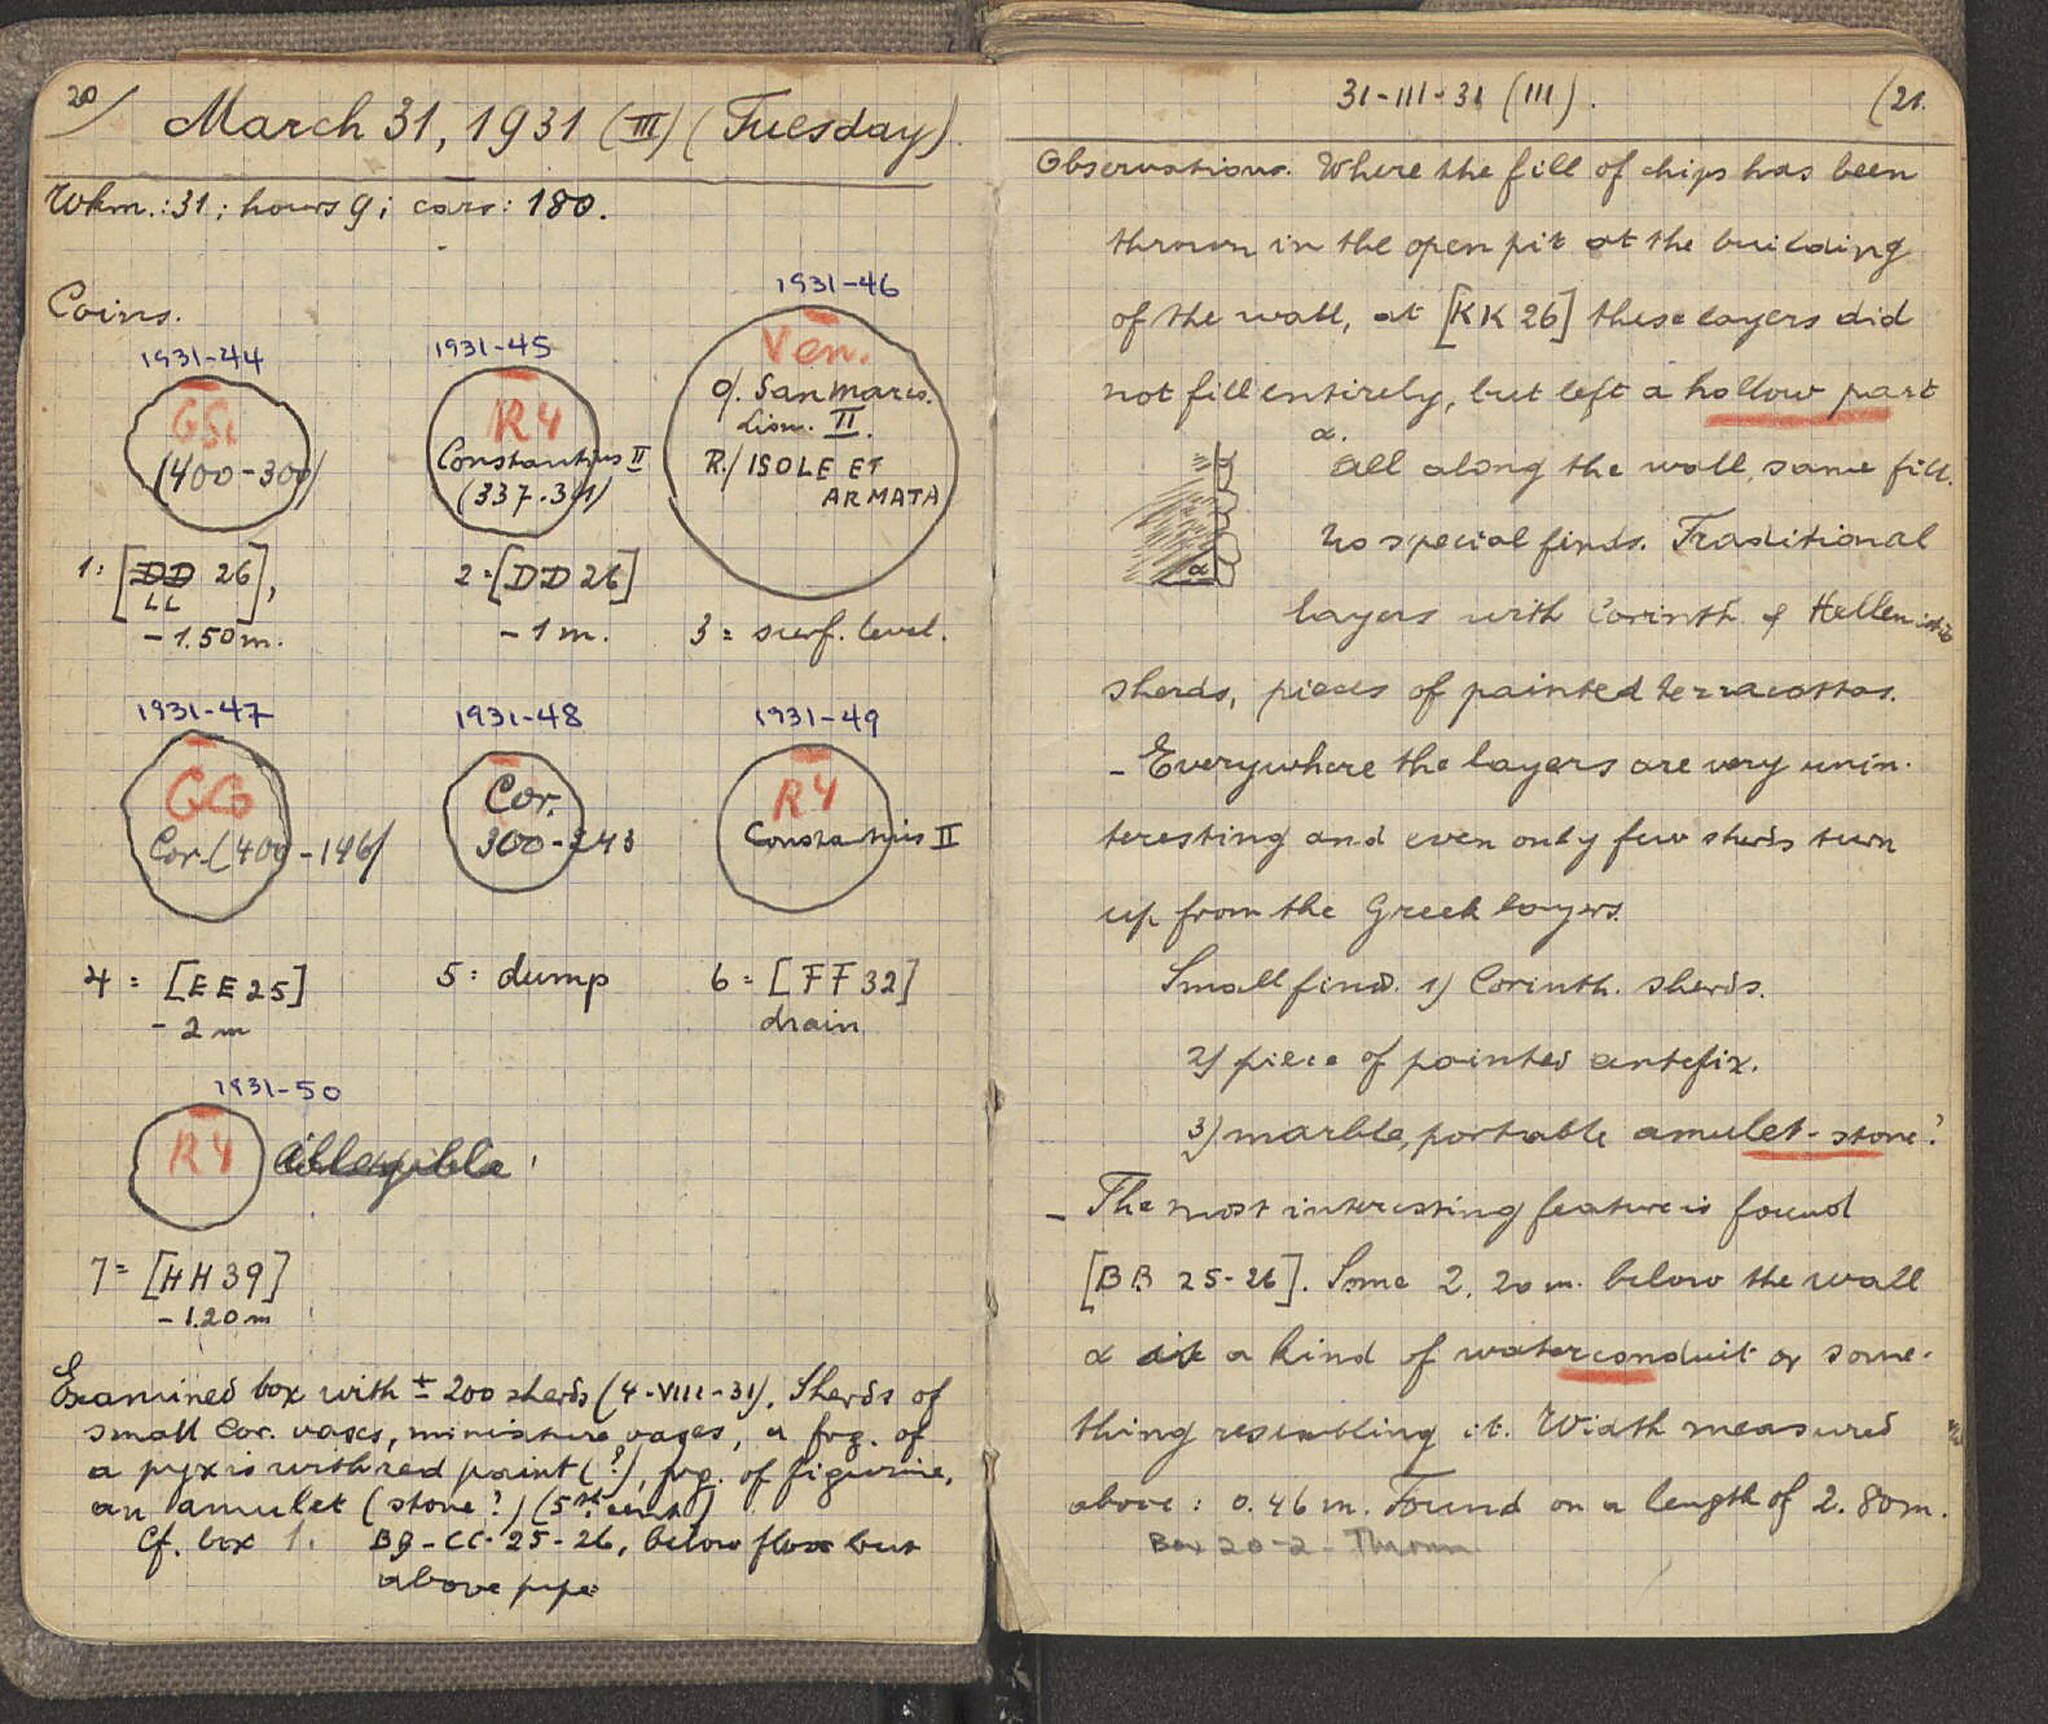 20/ March 31, 1931 (III) (Tuesday).
Wkm.: 31; hours 9; cars: 180.
Coins.
1931-44
GSi
(400-300)
1: [DD 26],
LL
- 1.50 m.
1931-45
R4
Constantius II
(337-361)
2 = [DD 26]
- 1 m.
1931-46
Ven.
O/. San Marco.
Lion. II.
R./ ISOLE ET
ARMATA
3 = surf. level.
1931-47
GCo
Cor. (400-146)
4 = [EE 25]
- 2 m
1931-48
Cor.
300-243
5 = dump
1931-49
R4
Constantius II
6 = [FF 32]
drain
1931-50
R4
illegible
7 = [HH 39]
- 1.20 m
Examined box with ± 200 sherds (4-VIII-31). Sherds of
small Cor. vases, miniature vases, a frg. of
a pyxis with red paint (?), frg. of figurine,
an amulet (stone?) (5th. cent.)
Cf. box 1. BB-CC-25-26, below floor but
above pipe
31-III-31 (III).
(21.
Observations. Where the fill of chips has been
thrown in the open pit at the building
of the wall, at [KK 26] these layers did
not fill entirely, but left a hollow part
α.
all along the wall, same fill.
α
No special finds. Traditional
layers with Corinth. & Hellenistic
sherds, pieces of painted terracottas.
- Everywhere the layers are very unin-
teresting and even only few sherds turn
up from the Greek layers.
Small finds. 1) Corinth. sherds.
2) piece of painted antefix.
3) marble, portable amulet-stone?
- The most interesting feature is found
[BB 25-26]. Some 2.20 m. below the wall
α is a kind of waterconduit or some-
thing resembling it. Width measured
above: 0.46 m. Found on a length of 2.80 m.
Box 20-2 - Thrown